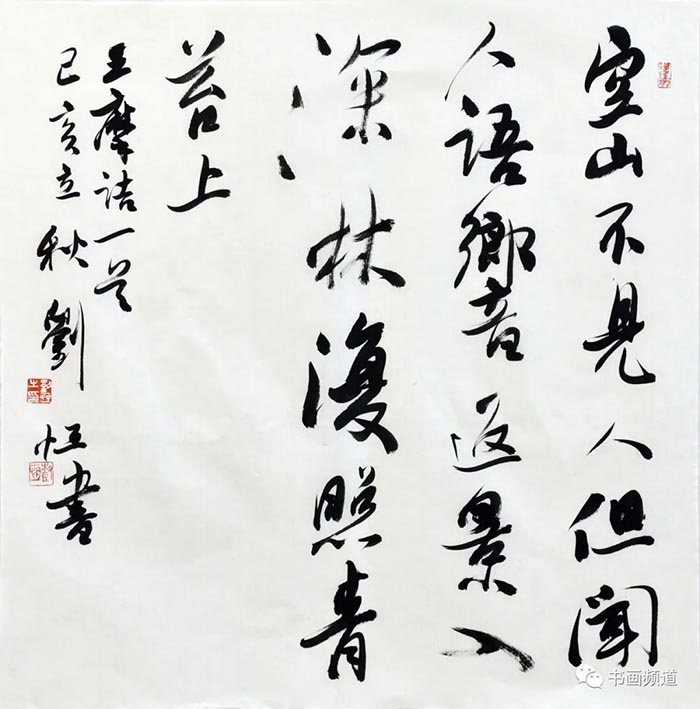 空山不見人但聞
人語響返景入
深林復照青
苔上
王摩詰一首
己亥立秋劉恒書
书画频道